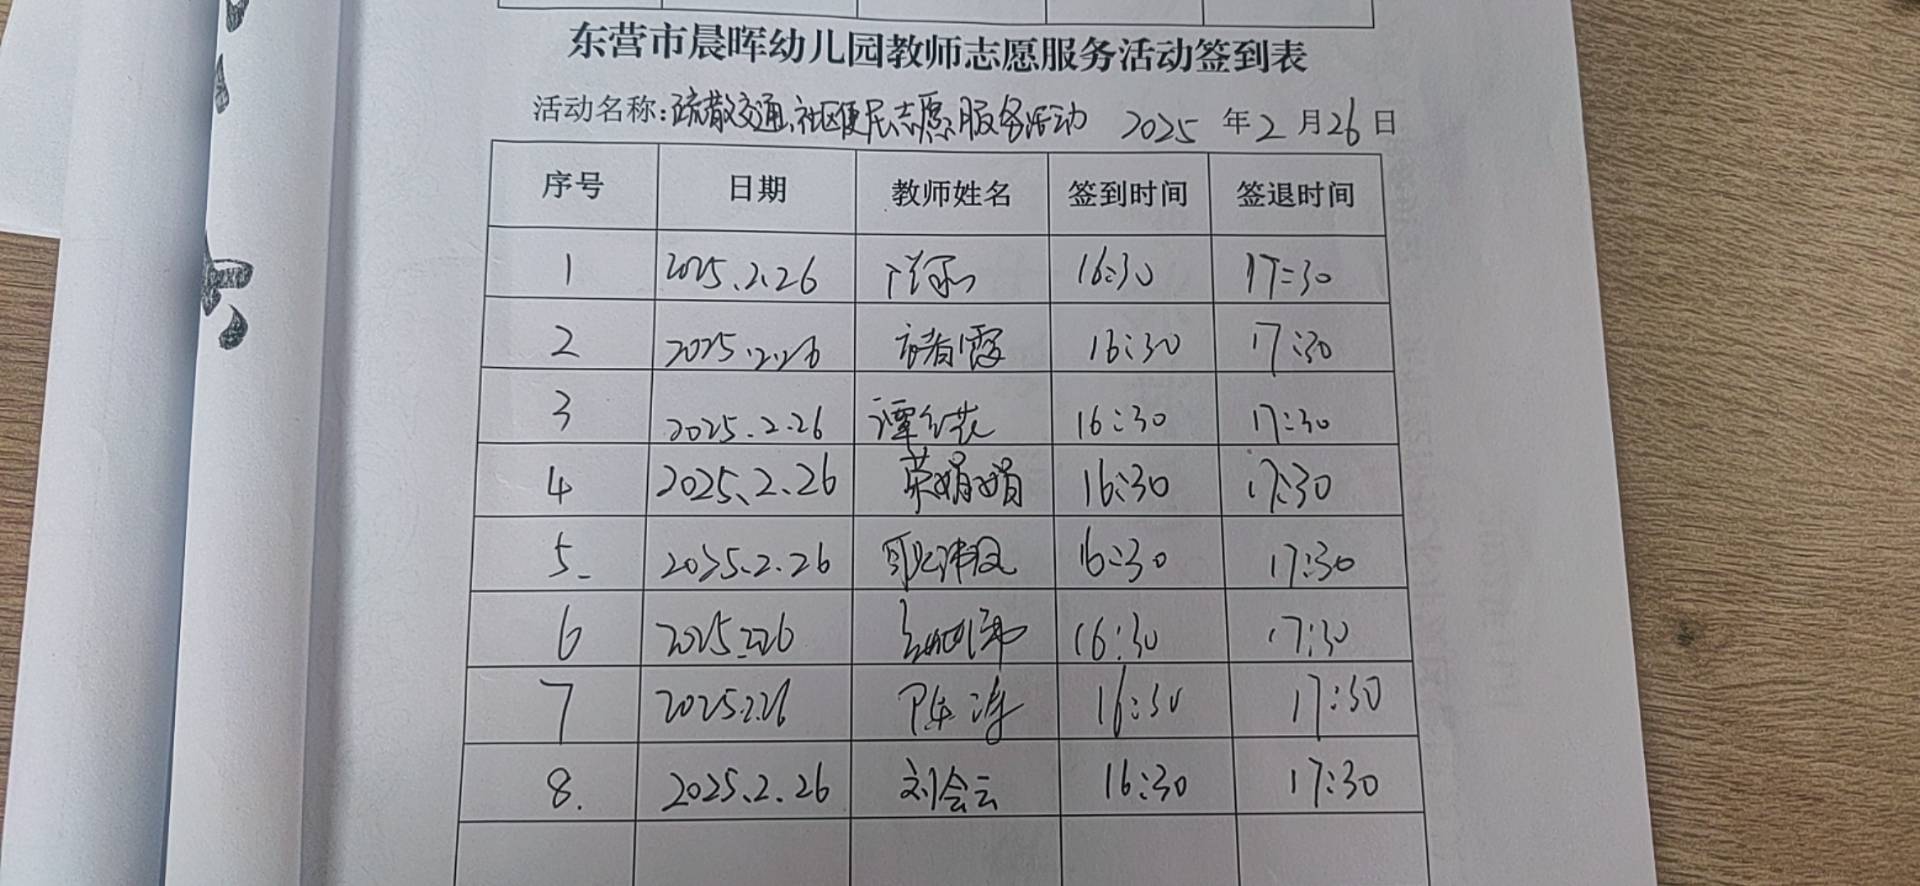 东营市晨晖幼儿园教师志愿服务活动签到表
活动名称:疏散交通、社区便民志愿服务活动 2025 年 2 月 26 日
序号 日期 教师姓名 签到时间 签退时间
1 2025.2.26 16:30 17:30
2 2025.2.26 16:30 17:30
3 2025.2.26 谭红花 16:30 17:30
4 2025.2.26 娟娟 16:30 17:30
5. 2025.2.26 16:30 17:30
6 2025.2.26 16:30 17:30
7 2025.2.26 陈涛 16:30 17:30
8. 2025.2.26 刘会云 16:30 17:30